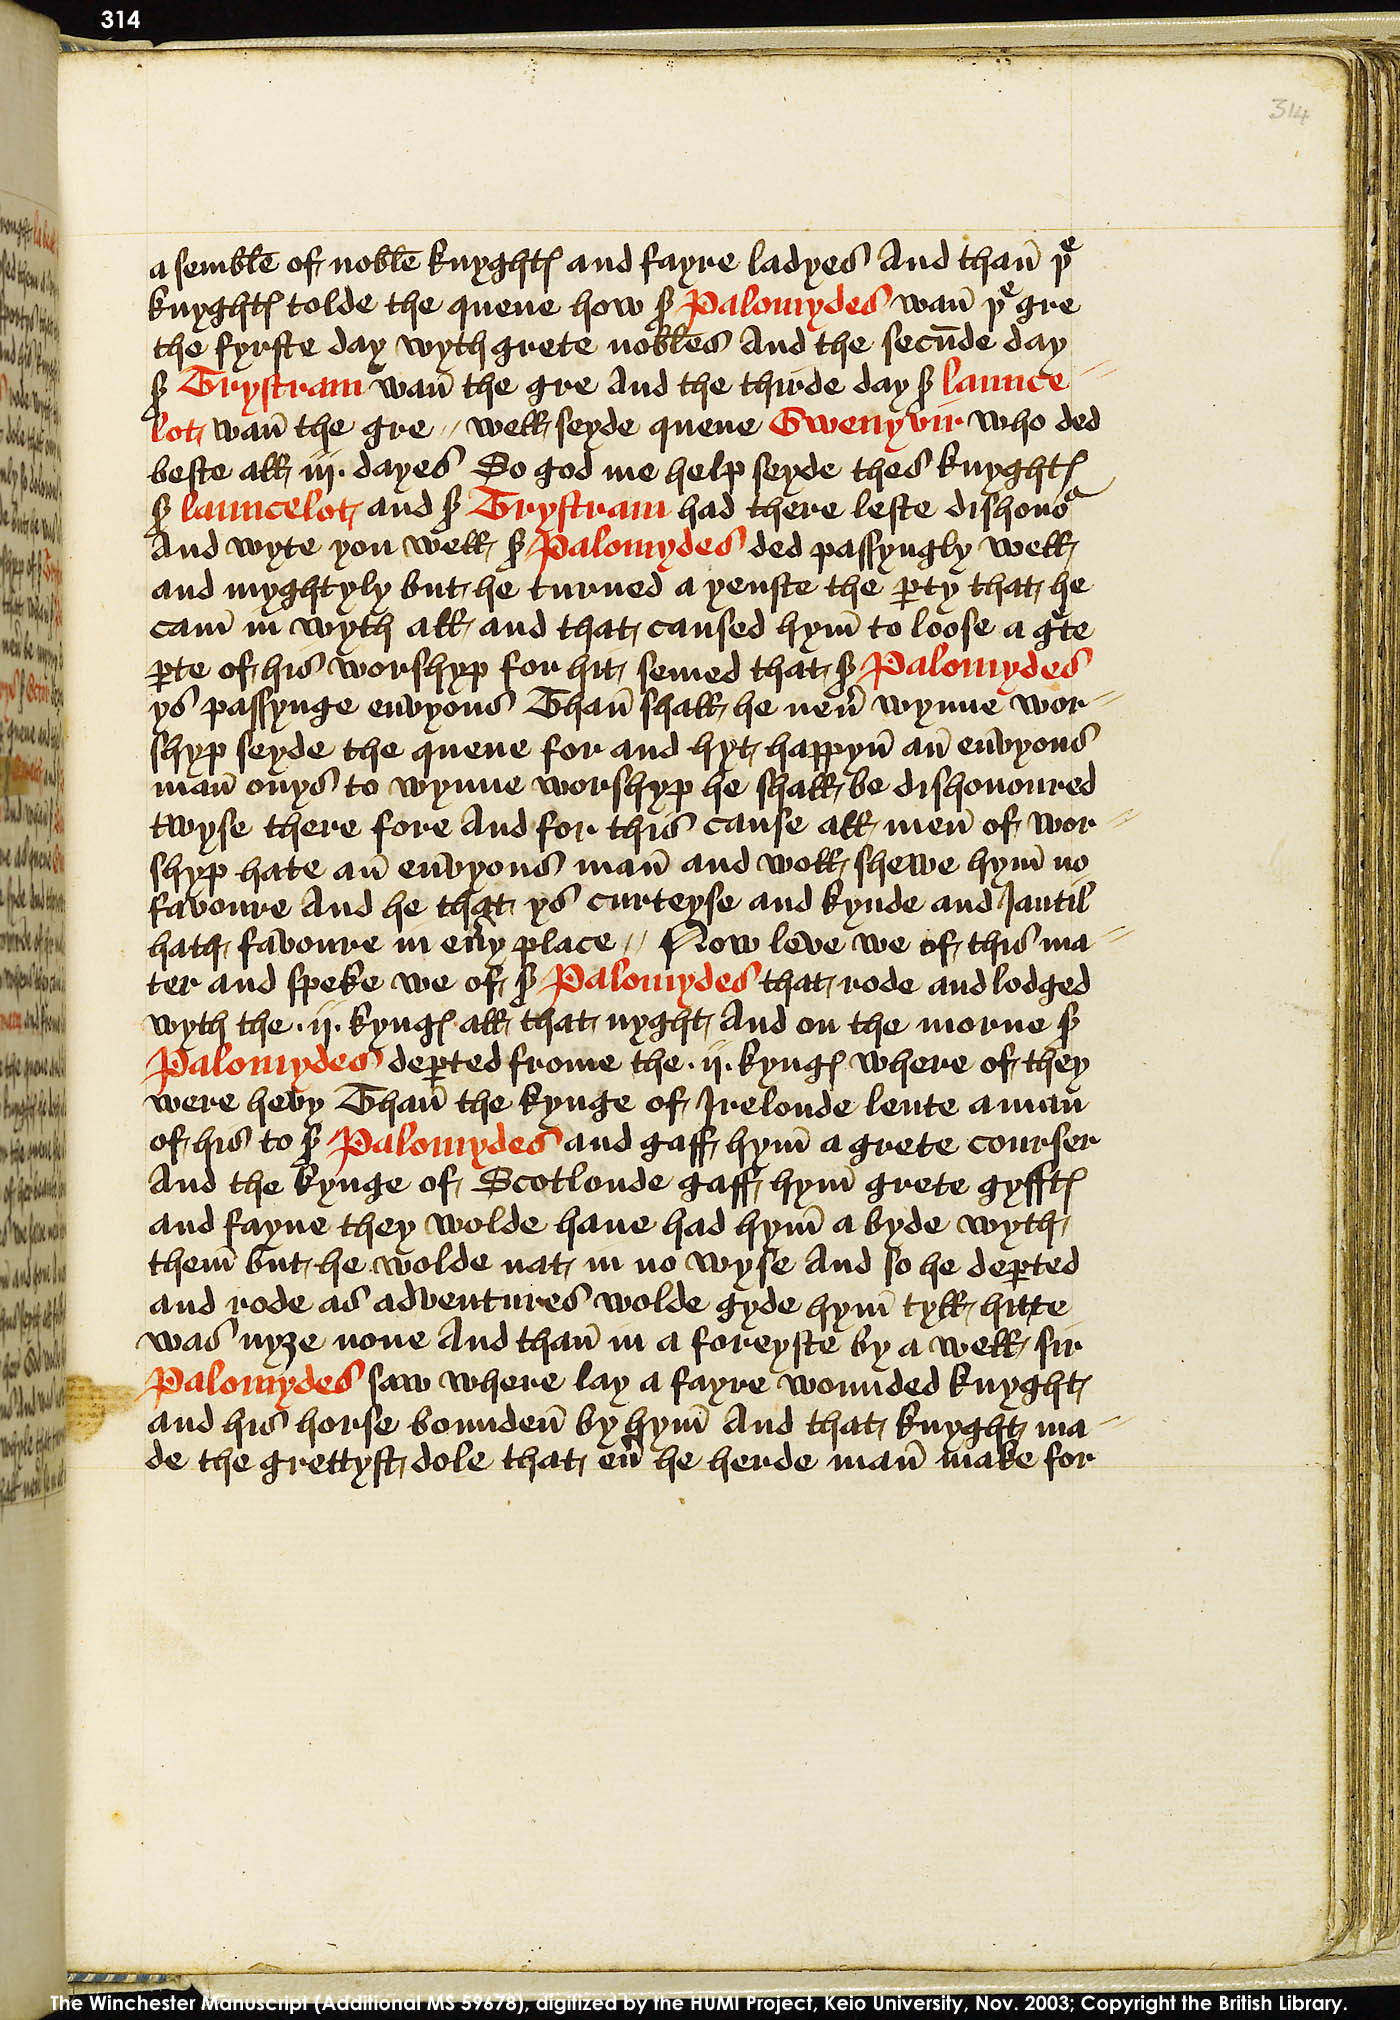 314
314
a semble of noble knyghtꝭ and fayre ladyes And than̄ yͤ
knyghtꝭ tolde the quene how sͬ Palomydes wan̄ yͤ gre
the fyrste day wyth grete nobles And the secūde day
sͬ Trystram wan̄ the gre And the thirde day sͬ launce
lot wan̄ the gre // well seyde quene Gwenyvir who ded
beste all .iij. dayes So god me help seyde thes knyghtꝭ
sͬ launcelot and sͬ Trystram had there leste dishonoͬ
And wyte you well sͬ Palomydes ded passyngly well
and myghtyly but he turned a yenste the ꝑty that he
cam̄ in wyth all and that caused hym̄ to loose a gͤte
ꝑte of his worshyp for hit semed that sͬ Palomydes
ys passynge envyous Than̄ shall he neũ wynne wor-
shyp seyde the quene for and hyt happyn̄ an̄ envyous
man̄ onys to wynne worshyp he shall be dishonoured
twyse there fore And for this cause all men̄ of wor-
shyp hate an̄ envyous man̄ and woll shewe hym̄ no
favoure And he that ys curteyse and kynde and Jantil
hath favoure in eũy place // Now leve we of this ma-
ter and speke we of sͬ Palomydes that rode and lodged
wyth the .ij. kyngꝭ all that nyght And on the morne sͬ
Palomydes deꝑted frome the .ij. kyngꝭ where of they
were hevy Than̄ the kynge of Irelonde lente a man̄
of his to sͬ Palomydes and gaff hym̄ a grete courser
And the kynge of Scotlonde gaff hym̄ grete gyfftꝭ
and fayne they wolde haue had hym̄ a byde wyth
them̄ but he wolde nat in no wyse And so he deꝑted
and rode as adventures wolde gyde hym̄ tyll hitte
was nyȝe none And than̄ in a foreyste by a well sir
Palomydes saw where lay a fayre wounded knyght
and his horse bounden̄ by hym̄ And that knyght ma-
de the grettyst dole that eũ he herde man̄ make for
The Winchester Manuscript (Additional MS 59678), digitized by the HUMI Project, Keio University, Nov. 2003; Copyright the British Library.